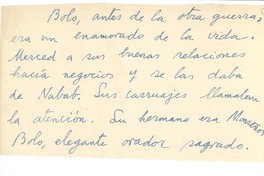 Bolo, antes de la otra guerra,
era un enamorado de la vida.
Merced a sus buenas relaciones
hacía negocios y se las daba
de Nabab. Sus carruajes llamaban
la atención. Su hermano era Monseñor
Bolo, elegante orador sagrado.